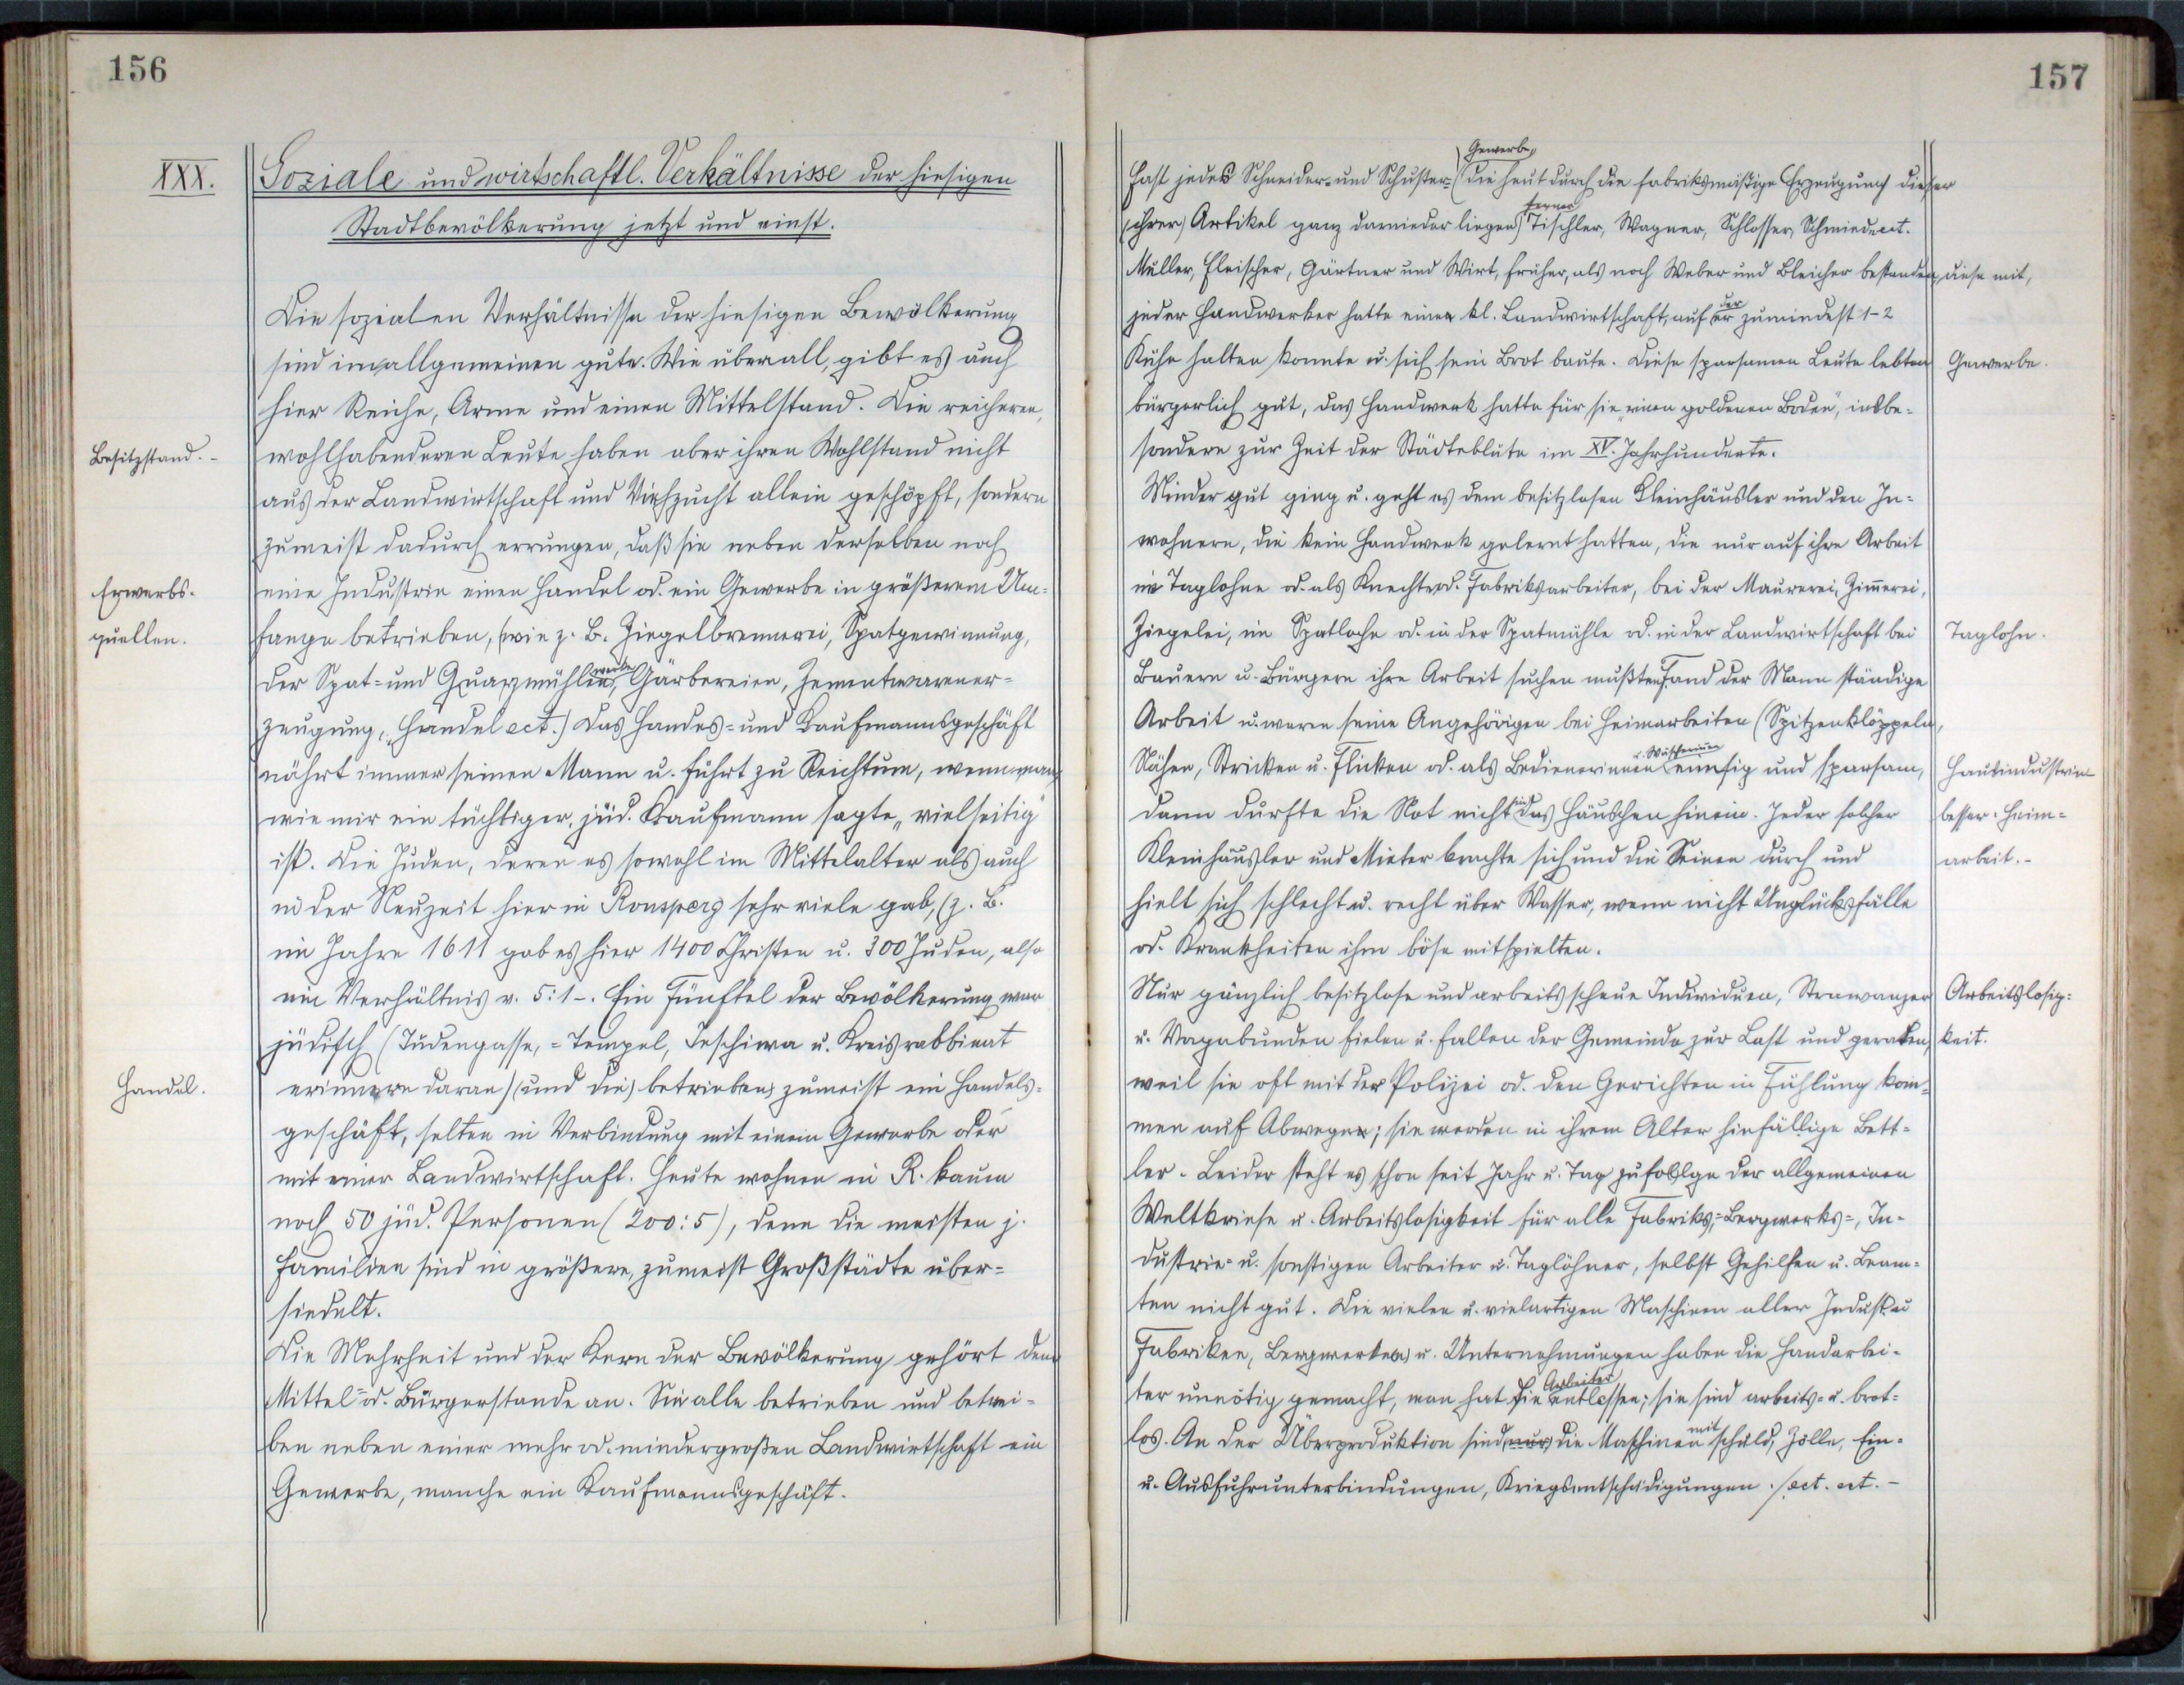 156
XXX.
Soziale und wirtschaftl. Verhältnisse der hiesigen
Stadtbevölkerung jetzt und einst.
Die sozialen Verhältnisse der hiesigen Bevölkerung
sind im allgemeinen gute. Wie überall, gibt es auch
hier Reiche, Arme und einen Mittelstand. Die reicheren,
Besitzstand.-
wohlhabenderen Leute haben aber ihren Wohlstand nicht
aus der Landwirtschaft und Viehzucht allein geschöpft, sondern
zumeist dadurch errungen, daß sie neben derselben noch
Erwerbs-
eine Industrie einen Handel od. ein Gewerbe in größerem Um-
quellen.
fange betrieben, (wie z. B. Ziegelbrennerei, Spatgewinnung,
der Spat- und Quarzmühlenwerke, Gärbereien, Zementwarener-
zeugung, Handel ect.) Das Handes- und Kaufmannsgeschäft
nährt immer seinen Mann u. führt zu Reichtum, wenn man,
wie mir ein tüchtiger, jüd. Kaufmann sagte „vielseitig"
ist. Die Juden, deren es sowohl im Mittelalter als auch
in der Neuzeit hier in Ronsperg sehr viele gab, (z. B.
im Jahre 1611 gab es hier 1400 Christen u. 300 Juden, also
ein Verhältnis v. 5:1-. Ein Fünftel der Bevölkerung war
jüdisch (Judengasse, =Tempel, Jeschiwa u. Kreisrabbinat
Handel.
erinnern daran) (und die) betrieben zumeist ein Handels-
geschäft, selten in Verbindung mit einem Gewerbe oder
mit einer Landwirtschaft. Heute wohnen in R. kaum
noch 50 jüd. Personen (200:5), denn die meisten j.
Familien sind in größere, zumeist Großstädte über-
siedelt.
Die Mehrheit und der Kern der Bevölkerung gehört dem
Mittel- od. Bürgerstande an. Sie alle betrieben und betrei-
ben neben einer mehr od. mindergroßen Landwirtschaft ein
Gewerbe, manche ein Kaufmannsgeschäft.
157
Gewerbe,
Fast jedes Schneider- und Schuster- (die heut durch die fabriksmäßige Erzeugung dieser
(ihrer) Artikel ganz darnieder liegen) ferner Tischler, Wagner, Schlosser, Schmied ect.
Müller, Fleischer, Gärtner und Wirt, früher, als noch Weber und Bleicher bestanden, diese mit,
jeder Handwerker hatte eine kl. Landwirtschaft, auf der er zumindest 1-2
Kühe halten konnte u. sich sein Brot baute. Diese sparsamen Leute lebten
Gewerbe.
bürgerlich gut, das Handwerk hatte für sie „einen goldenen Boden", insbe-
sondere zur Zeit der Städteblüte im XV. Jahrhunderte.
Minder gut ging u. geht es dem besitzlosen Kleinhäusler und den In-
wohnern, die kein Handwerk gelernt hatten, die nur auf ihre Arbeit
im Taglohne od. als Knechte od. Fabriksarbeiter, bei der Maurerei, Zimmerei,
Ziegelei, im Spatloche od. in der Spatmühle od. in der Landwirtschaft bei
Taglohn.
Bauern u. Bürgern ihre Arbeit suchen mußten. Fand der Mann ständige
Arbeit u. waren seine Angehörigen bei Heimarbeiten (Spitzenklöppeln,
Nähen, Stricken u. Flicken od. als Bedienerinnen u. Wäscherinnen emsig und sparsam,
Hausindustrie
dann durfte die Not nicht in das Häuschen hinein. Jeder solcher
besser: Heim-
Kleinhäusler und Mieter brachte sich und die Seinen durch und
arbeit.-
hielt sich schlecht u. recht über Wasser, wenn nicht Unglücksfälle
od. Krankheiten ihm böse mitspielten.
Nur gänzlich besitzlose und arbeitsscheue Individuen, Strawanzer
Arbeitslosig-
u. Vagabunden fielen u. fallen der Gemeinde zur Last und geraten,
keit.
weil sie oft mit der Polizei od. den Gerichten in Fühlung kom-
men auf Abwege; sie werden in ihrem Alter hinfällige Bett-
ler. Leider steht es schon seit Jahr u. Tag zufolge der allgemeinen
Weltkriese u. Arbeitslosigkeit für alle Fabriks-, Bergwerks-, In-
dustrie- u. sonstigen Arbeiter u. Taglöhner, selbst Gehilfen u. Beam-
ten nicht gut. Die vielen u. vielartigen Maschinen aller Indust. u
Fabriken, Bergwerke u. Unternehmungen haben die Handarbei-
ter unnötig gemacht, man hat die Arbeiter entlassen; sie sind arbeits- u. brot-
los. An der Überproduktion sind nur die Maschinen mit schuld, Zölle, Ein-
u. Ausfuhrunterbindungen, Kriegsentschädigungen ./ ect. ect. -